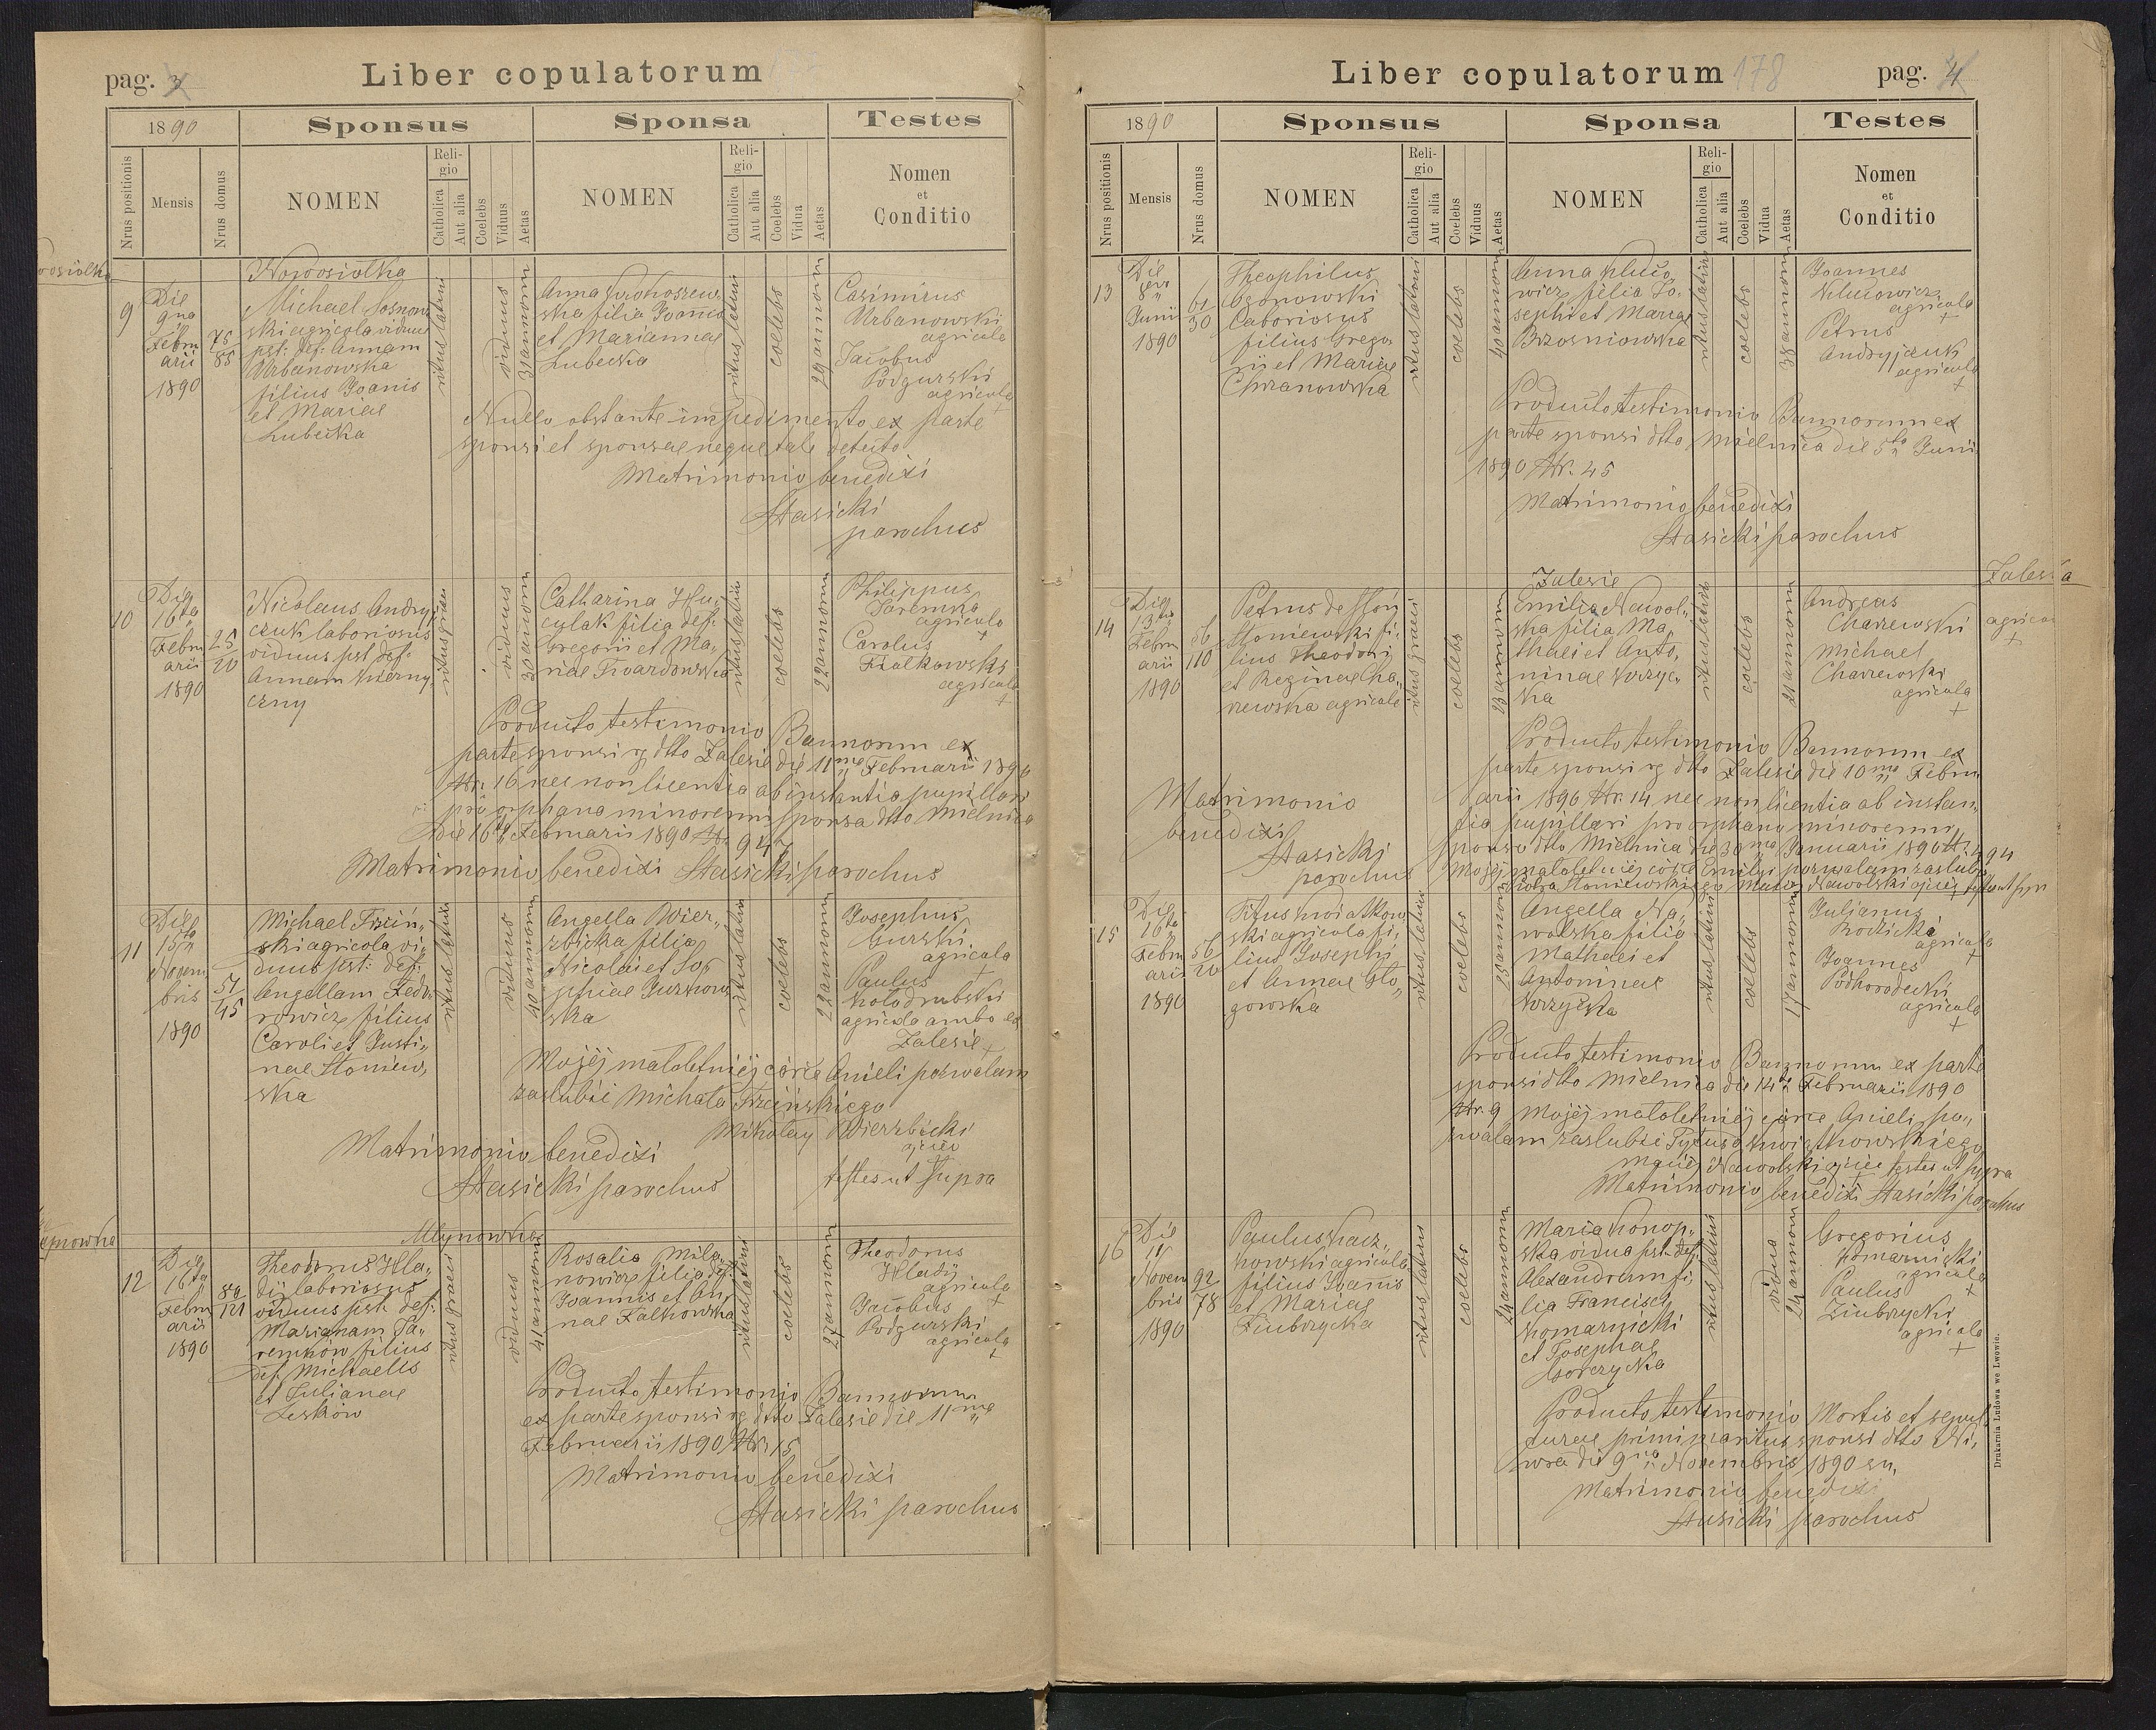 pag. 3
Liber copulatorum
1890
Sponsus
Sponsa
Testes
Nrus positionis
Mensis
Nrus domus
NOMEN
Religio
Catholica
Aut alia
Coelebs
Viduus
Aetas
NOMEN
Religio
Catholica
Aut alia
Coelebs
Vidua
Aetas
Nomen
et
Conditio
Nowosiolka
9
Die
9na
Febru
arii
1890
75
85
Michael Sosnow
ski agricola viduus
pst: def: Annam
Urbanowska
filius Joanis
et Mariae
Lubecka
ritus latini
viduus
31 annorum
Anna
ska filia Joanis
et Mariannae
Lubecka
ritus latini
coelebs
29 annorum
Casimirus
Urbanowski
agricola
Jacobus
Podgurski
agricola
+
Nullo obstante impedimento ex parte
sponsi et sponsae neque tale detecto
Matrimonio benedixi
Stasicki
parochus
10
Die
16ta
Febru
arii
1890
25
20
Nicolaus Andryj
czuk laboriosus
viduus pst def:
Annam
czny
viduus
30 annorum
Catharina Hu„
culak filia def:
Gregorii et Ma„
riae Twardowska
ritus latini
coelebs
22 annorum
Philippus
Saremka
agricola
+
Carolus
Fialkowski
agricola
+
Producto testimonio Bannorum ex
parte sponsi rg dtto Zalesie die 11me Februarii 1890
Nr. 16 nec non licentia ab instantia pupillari
pro orphana minorenni sponsa dtto Mielnica
die 16ta Februarii 1890 Nr. 947
Matrimonio benedixi Stasicki parochus
11
Die
15ta
Novem
bris
1890
51
45
Michael Trzciń„
ski agricola vi„
duus pst: def:
Angellam Fedo
rowicz filius
Caroli et Justi„
nae Stoniew„
ska
ritus latini
viduus
40 annorum
Angella Wier„
zbicka filia
Nicolai et So„
phiae Jurkow
ska
ritus latini
coelebs
22 annorum
Josephus
Gurski
agricola
+
Paulus
Kolodrubski
agricola ambo ex
Zalesie +
Mojéj małoletniéj córce Anieli pozwalam
zaślubić Michała Trzcińskiego
Mikołay Wierzbicki
ojciec
Matrimonio benedixi
Stasicki parochus
testes ut supra
Mlynowka
12
Die
16ta
Febru
arii
1890
89
121
Theodorus Hla„
dij laboriosus
viduus pst. def:
Mariannam Sa„
remków filius
def: Michaelis
et Julianae
Leskow
ritus graeci
viduus
41 annorum
Rosalia Mila„
nowicz filia def:
Joannis et An„
nae Falkowska
ritus latini
coelebs
27 annorum
Theodorus
Hladij
agricola
+
Jacobus
Podgurski
agricola
+
Producto testimonio Bannorum
ex parte sponsi rg dtto Zalesie die 11me
Februarii 1890 Nr. 15
Matrimonio benedixi
Stasicki parochus
Liber copulatorum 178
pag. 4
1890
Sponsus
Sponsa
Testes
Nrus positionis
Mensis
Nrus domus
NOMEN
Religio
Catholica
Aut alia
Coelebs
Viduus
Aetas
NOMEN
Religio
Catholica
Aut alia
Coelebs
Vidua
Aetas
Nomen
et
Conditio
13
Die
8va
Junii
1890
61
30
Theophilus
laboriosus
filius Grego„
rii et Mariae
Chrzanowska
ritus latini
coelebs
40 annorum
Anna Kluco„
wicz filia Jo„
sephi et Mariae
Brzosniowska
ritus latini
coelebs
38 annorum
Joannes
Klucowicz
agricola
+
Petrus
Andryjczuk
agricola
+
Producto testimonio Bannorum ex
parte sponsi dtto Mielnica die 5ta Junii
1890 Nr. 45
Matrimonio benedixi
Stasicki parochus
Zalesie
14
Die
13ta
Febru
arii
1890
56
110
Petrus de
Stoniewski fi„
lius Theodori
et Reginae Cha„
rzewska agricola
ritus graeci
coelebs
23 annorum
Emilia Nawol„
ska filia Ma„
thaei et Anto„
ninae Korzyc„
ka
ritus latini
coelebs
21 annorum
Andreas
Charzewski
agricola
+
Michael
Charzewski
agricola
+
Producto testimonio Bannorum ex
parte sponsi rg dtto Zalesie die 10ma Febru
arii 1890 Nr. 14 nec non licentia ab instan„
tia pupillari pro orphano minorenni
sponso dtto Mielnica die 30ma Januarii 1890 Nr. 494
Mojéj małoletniéj córce Emilyi pozwalam zaślubić
Piotra Stoniewskiego Maciej Nawolski ojciec
Matrimonio
benedixi
Stasicki
parochus
15
Die
16ta
Febru
arii
1890
56
20
Titus Kwiatkow
ski agricola fi„
lius Josephi
et Annae Glo„
gowska
ritus latini
coelebs
25 annorum
Angella Na„
wolska filia
Mathaei et
Antoninae
Korzycka
ritus latini
coelebs
17 annorum
Julianus
agricola
+
Joannes
Podhorodecki
agricola
+
Producto testimonio Bannorum ex parte
sponsi dtto Mielnica die 14ta Februarii 1890
Nr. 9 Mojéj małoletniéj córce Anieli po„
zwalam zaślubić Tytusa Kwiatkowskiego
Maciej Nawolski ojciec testes ut supra
Matrimonio benedixi Stasicki parochus
16
Die
Novem
bris
1890
92
78
Paulus Kacz„
kowski agricola
filius Joanis
et Mariae
Ziubrzycka
ritus latini
coelebs
24 annorum
Maria Konop„
ska vidua pst. def:
Alexandrum fi„
lia Francisci
Komarnicki
et Josephae
ritus latini
vidua
24 annorum
Gregorius
Komarnicki
agricola
+
Paulus
Ziubrzycki
agricola
+
Producto testimonio Mortis et sepul„
turae primi maritus sponsi dtto Ni„
wra die 9na Novembris 1890
Matrimonio benedixi
Stasicki parochus
Drukarnia Ludowa we Lwowie.